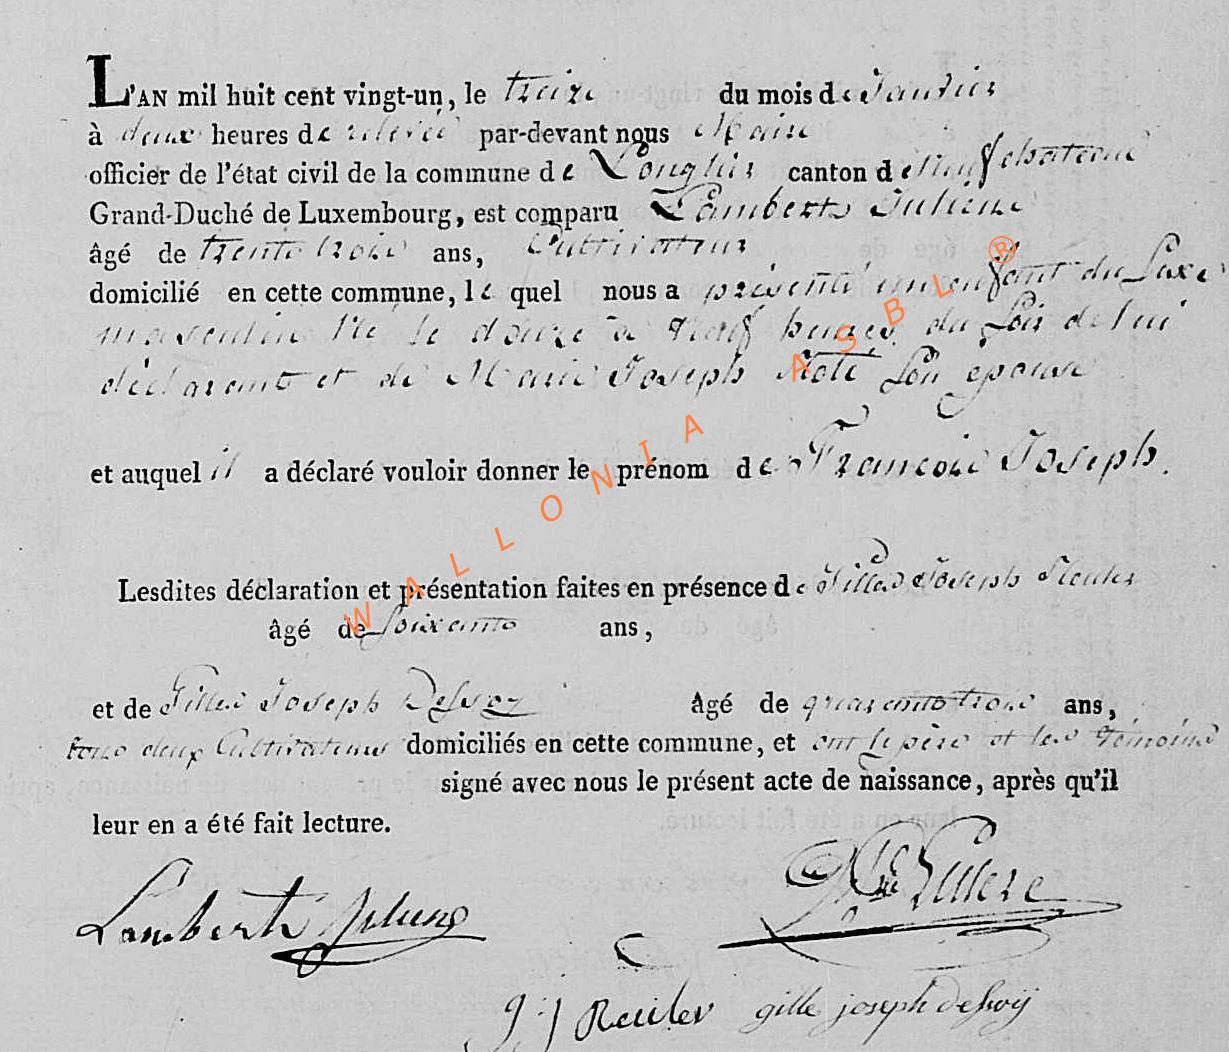 L'AN mil huit cent vingt-un, le treize du mois de Janvier
à deux heures de relevée par-devant nous Maire
officier de l'état civil de la commune de Longlier canton de Neufchateau
Grand-Duché de Luxembourg, est comparu Lambert Juliene
âgé de trente trois ans, Cultivateur
domicilié en cette commune, le quel nous a présenté un enfant du Sexe
masculin Né le douze à Neuf heures du Soir de lui
déclarant et de Marie Joseph son épouse
et auquel il a déclaré vouloir donner le prénom de François Joseph.
Lesdites déclaration et présentation faites en présence de Gilles Joseph
âgé de Soixante ans,
et de Gilles Joseph Dessoy âgé de quarante trois ans,
tous deux Cultivateurs domiciliés en cette commune, et ont le père et les témoins
signé avec nous le présent acte de naissance, après qu'il
leur en a été fait lecture.
Lambert
g j Reuler gille joseph dessoij
WALLONIA ASBL ®